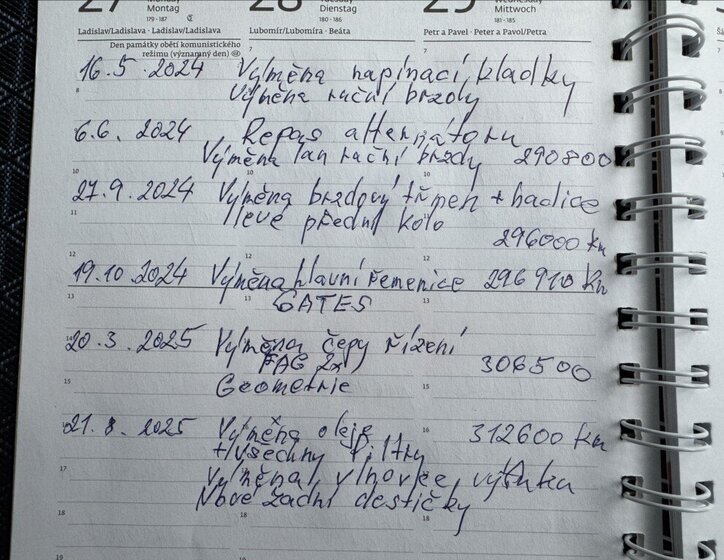 27 Monday Montag 179 - 187 Ladislav/Ladislava · Ladislav/Ladislava
28 Tuesday Dienstag 180 - 186 Lubomír/Lubomíra · Beáta
29 Wednesday Mittwoch 181 - 185 Petr a Pavel · Peter a Pavol/Petra
Den památky obětí komunistického
režimu (významný den)
7 7
16.5.2024 Výměna napínací kladky
8
Výměna ruční brzdy
6.6. 2024 Repas alternátoru
Výměna lan ruční brzdy 290800
10 10 10
27.9.2024 Výměna brzdový třmen + hadice
11
levé přední kolo
296000 km
12 12 12
19.10.2024 Výměna hlavní řemenice 296910 km
13 13 13
GATES
14
20.3.2025 Výměna čepy řízení
FAG 2x 306500
15 15
Geometrie
16
21.8.2025 Výměna oleje 312600 km
+ všechny filtry
17
Výměna vlnovce výfuku
Nové zadní destičky
18 18 18
19